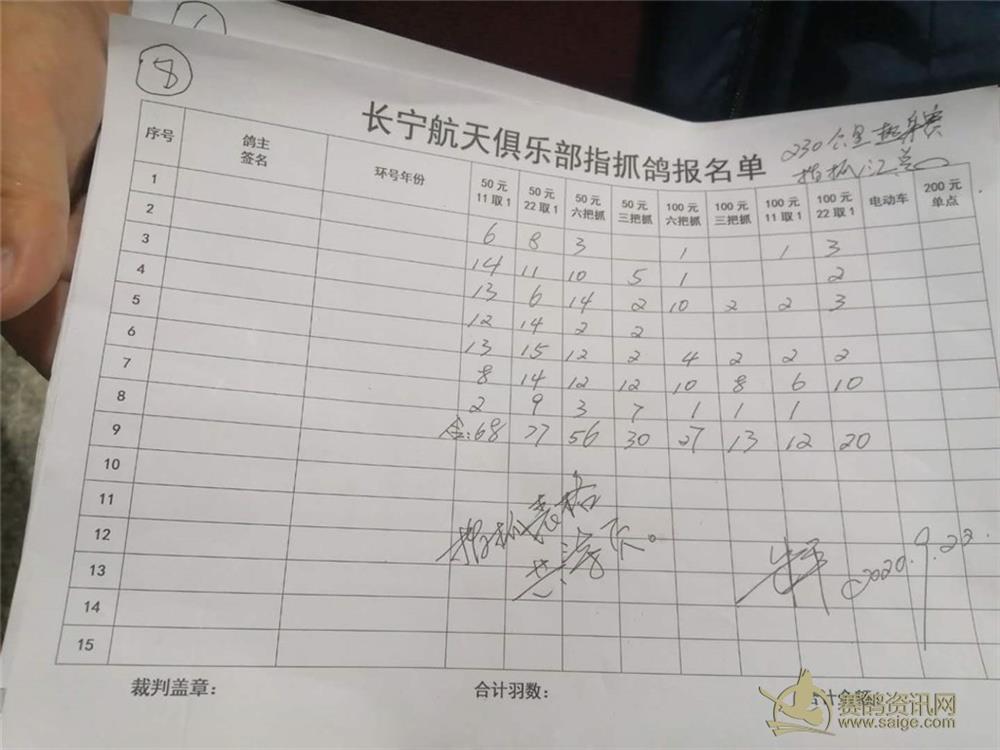 8
长宁航天俱乐部指抓鸽报名单
230公里
指抓汇总
序号 鸽主签名 环号年份 50元11取1 50元22取1 50元六把抓 50元三把抓 100元六把抓 100元三把抓 100元11取1 100元22取1 电动车 200元单点
1
2 6 8 3 1 1 3
3 14 11 10 5 1 2
4 13 6 14 2 10 2 2 3
5 12 14 2 2
6 13 15 12 2 4 2 2 2
7 8 14 12 12 10 8 6 10
8 2 9 3 7 1 1 1
9 合:68 77 56 30 27 13 12 20
10
11
12
13
14
15
指抓表格
共 页。
2020.9.22.
裁判盖章: 合计羽数: 合计金额
赛鸽资讯网
www.saige.com